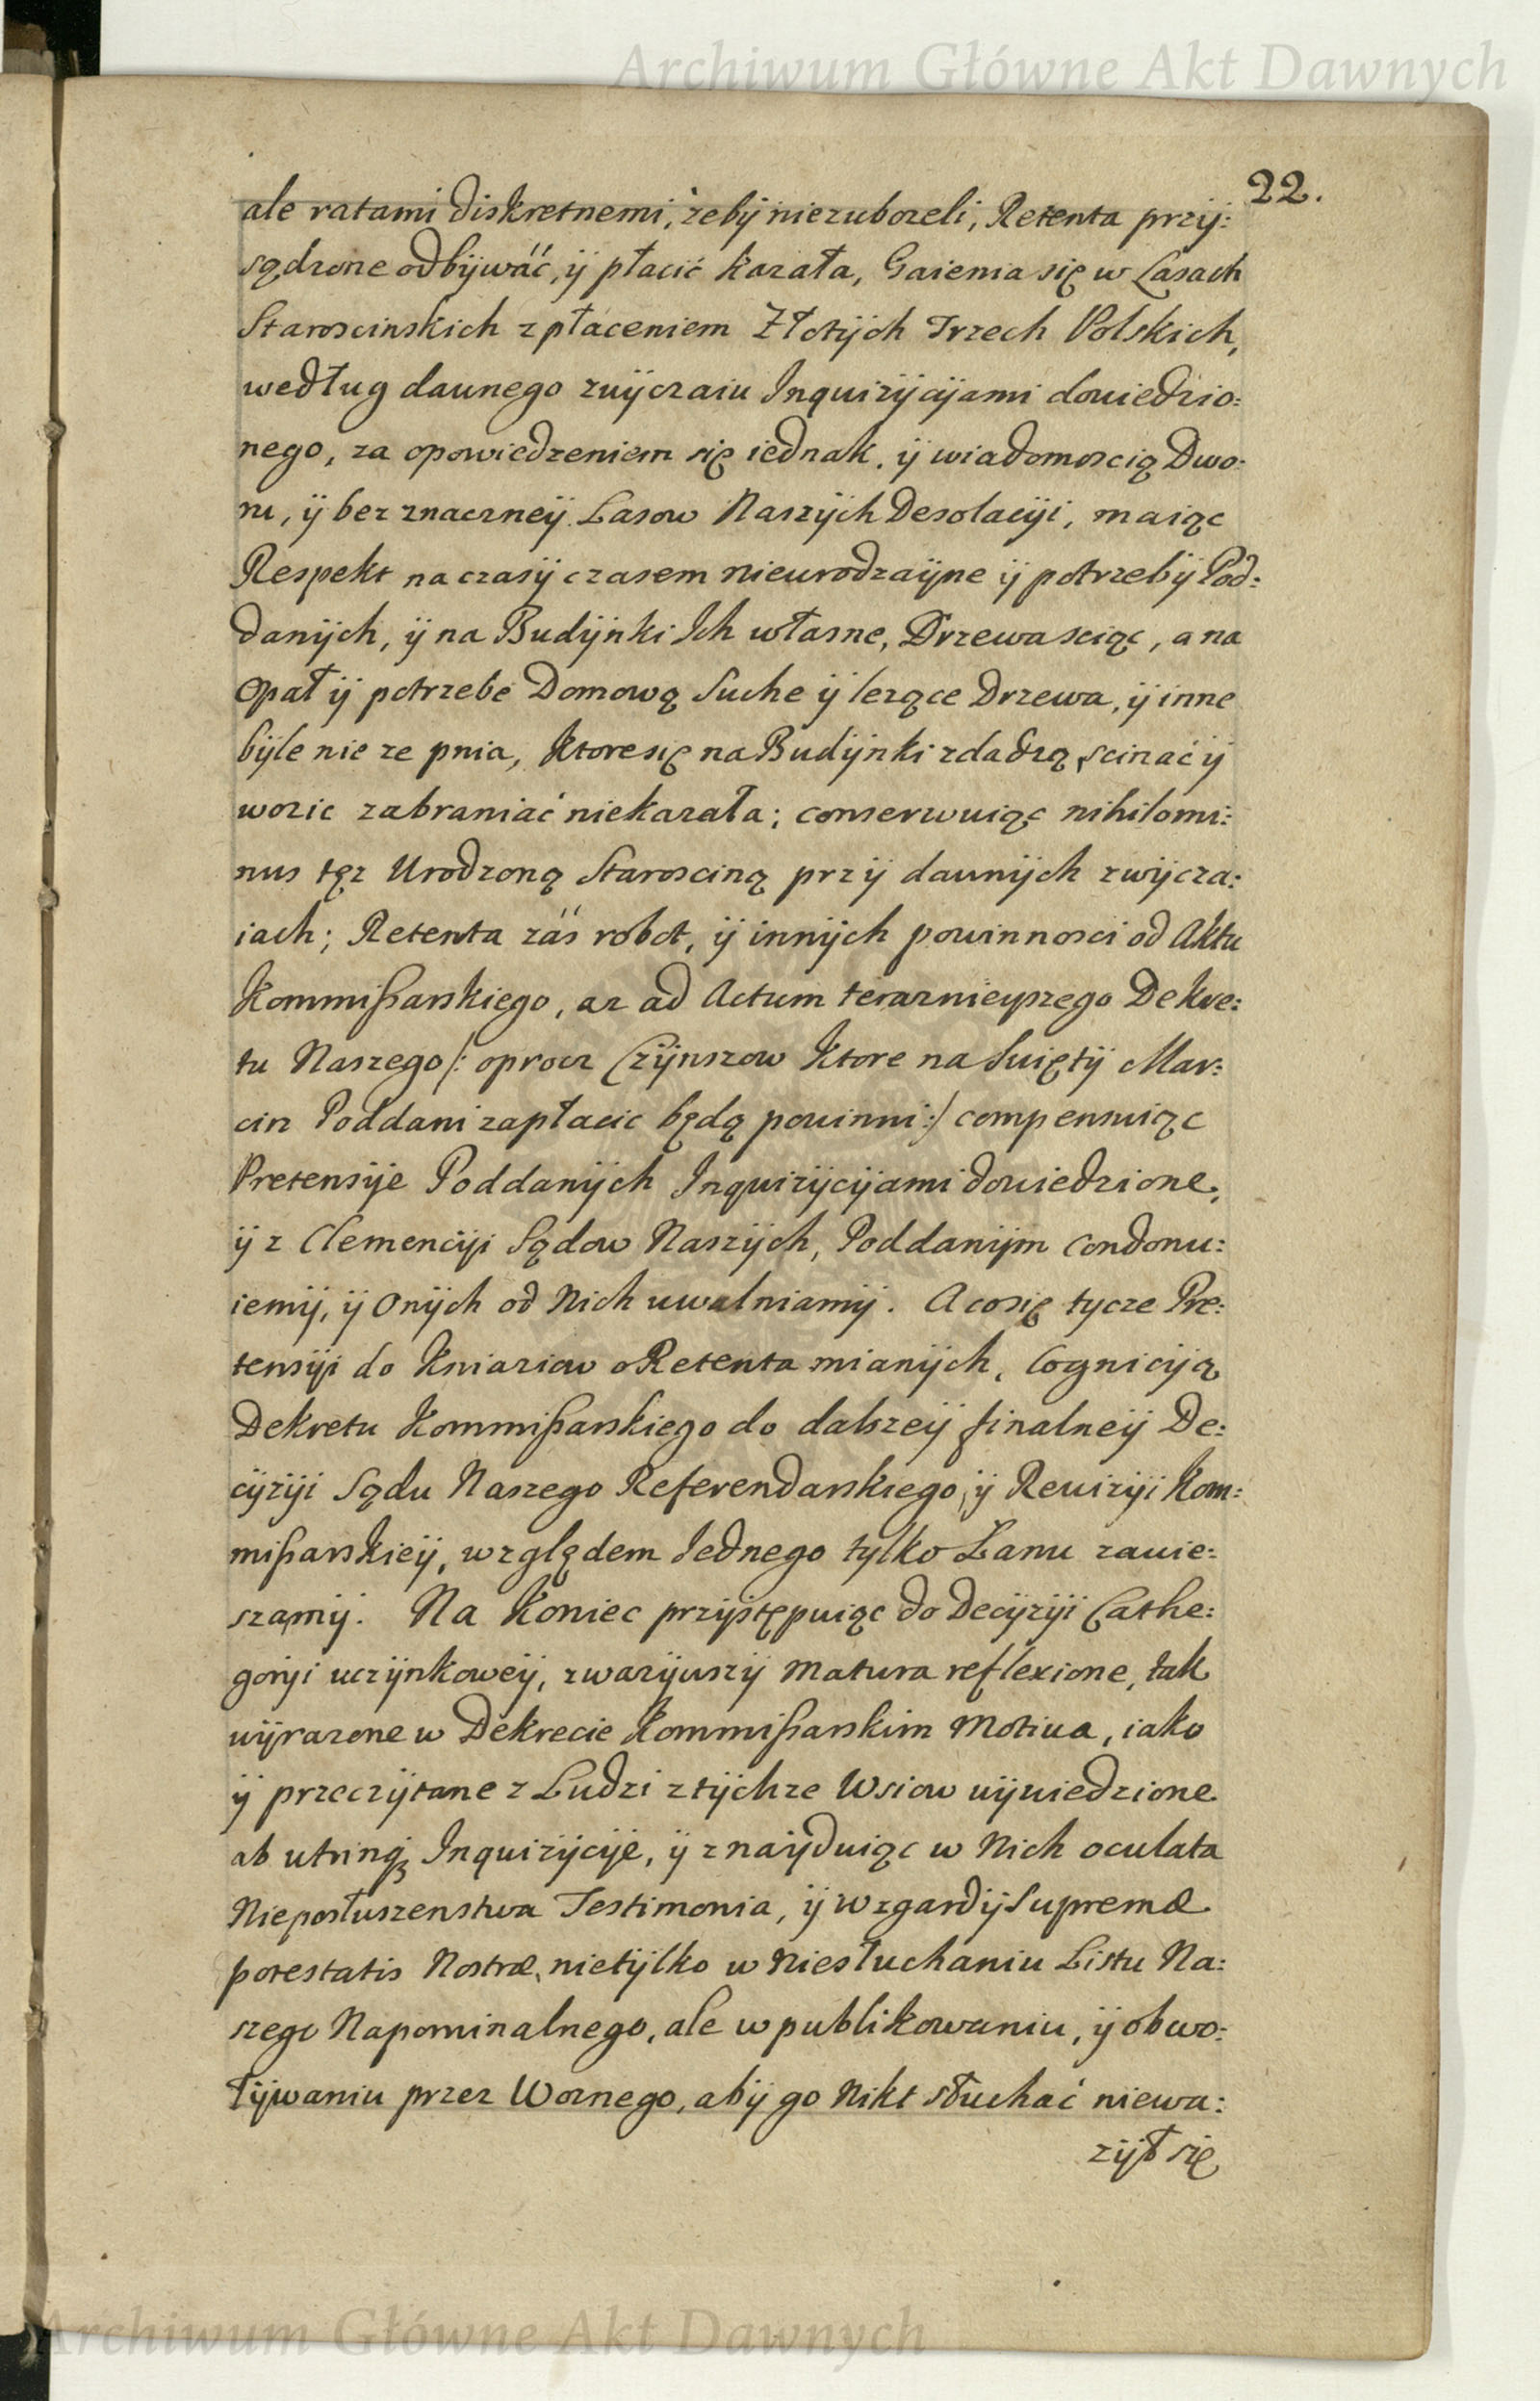 Archiwum Główne Akt Dawnych
22.
ale ratami diskretnemi, żebÿ niezubozeli, Retenta przÿ:
sądzone odbÿwáć, ÿ płacić kazała, Gaienia się w Lasach
Staroscinskich z płaceniem Złotÿch Trzech Polskich,
według dawnego zwÿczaiu Inquizÿcÿjami dowiedzio:
nego, za opowiedzeniem się iednak, ÿ wiadomoscią Dwo:
ru, ÿ bez znaczneÿ Lasow Naszÿch Desolacÿi, maiąc
Respekt na czasÿ czasem nieurodzaÿne ÿ potrzebÿ Pod:
danÿch, ÿ na Budÿnki Ich własne, Drzewa sciąc, a na
Opał ÿ potrzebe Domową Suche ÿ lezące Drzewa, ÿ inne
bÿle nie ze pnia, ktore się na Budÿnki zdadzą, scinać ÿ
wozic zabraniać niekazała; conserwuiąc nihilomi:
nus tęz Urodzoną Staroscinę przÿ dawnÿch zwÿcza:
iach; Retenta záś robot, ÿ innÿch powinnosci od Aktu
Kommißarskiego, az ad Actum terazniejszego Dekre:
tu Naszego /: oprocz Czÿnszow ktore na Swiętÿ Mar:
cin Poddani zapłacic będą powinni :/ compensuiąc
Pretensÿe Poddanÿch Inquizÿcÿjami dowiedzione,
ÿ z Clemencÿi Sądow Naszÿch, Poddanÿm condonu:
iemÿ, ÿ Onÿch od Nich uwalniamÿ. A co się tycze Pre:
tensÿi do Kniaziow o Retenta mianÿch, Cognicÿją
Dekretu Kommißarskiego do dalszeÿ finalneÿ De:
cÿzÿi Sądu Naszego Referendarskiego, ÿ Rewizÿi Kom:
mißarskieÿ, względem Iednego tylko Łanu zawie:
szamÿ. Na koniec przÿstępuiąc do Decÿzÿi Cathe:
gorÿi uczÿnkoweÿ, zwazÿwszÿ matura reflexione, tak
wÿrazone w Dekrecie Kommißarskim Motiva, iako
ÿ przeczÿtane z Ludzi z tÿchze Wsiow wÿwiedzione
ab utrinqꝫ Inquizÿcÿje, ÿ znaÿduiąc w Nich oculata
Nieposłuszenstwa Testimonia, ÿ wzgardÿ Supremæ
potestatis Nostræ, nietÿlko w niesłuchaniu Listu Na:
szego Napominalnego, ale w publikowaniu, ÿ obwo:
łÿwaniu przez Woznego, abÿ go Nikt słuchać niewa:
zÿł się
Archiwum Główne Akt Dawnych